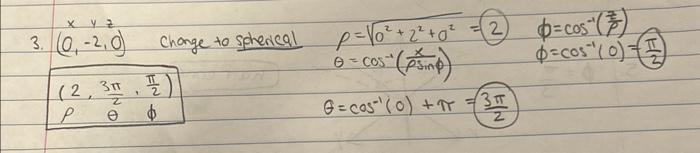 x y z
3. (0, -2, 0) Change to spherical ρ = √0² + 2² + 0² = 2 ϕ = cos⁻¹(z/ρ)
θ = cos⁻¹(x/ρsinϕ) ϕ = cos⁻¹(0) = π/2
(2, 3π/2, π/2)
ρ θ ϕ
θ = cos⁻¹(0) + π = 3π/2